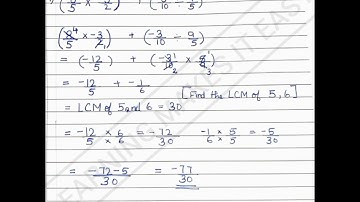 (8/5 × -3/2) + (-3/10 ÷ 9/5)
= (-12/5) + (-3/10 × 5/9)
= -12/5 + -1/6 [Find the LCM of 5,6]
= LCM of 5 and 6 = 30
= -12/5 × 6/6 = -72/30 -1/6 × 5/5 = -5/30
= -72-5/30 = -77/30
LEARNING MAKES IT EASY